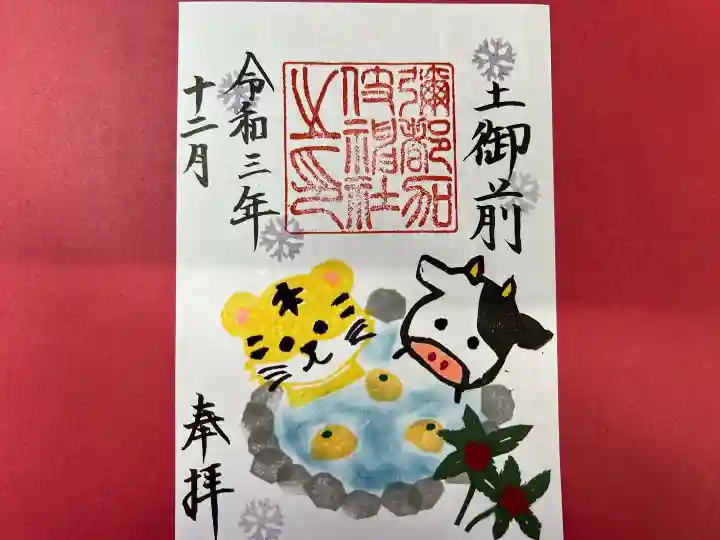 土御前
彌都加
伎神社
之印
令和三年
十二月
奉拝